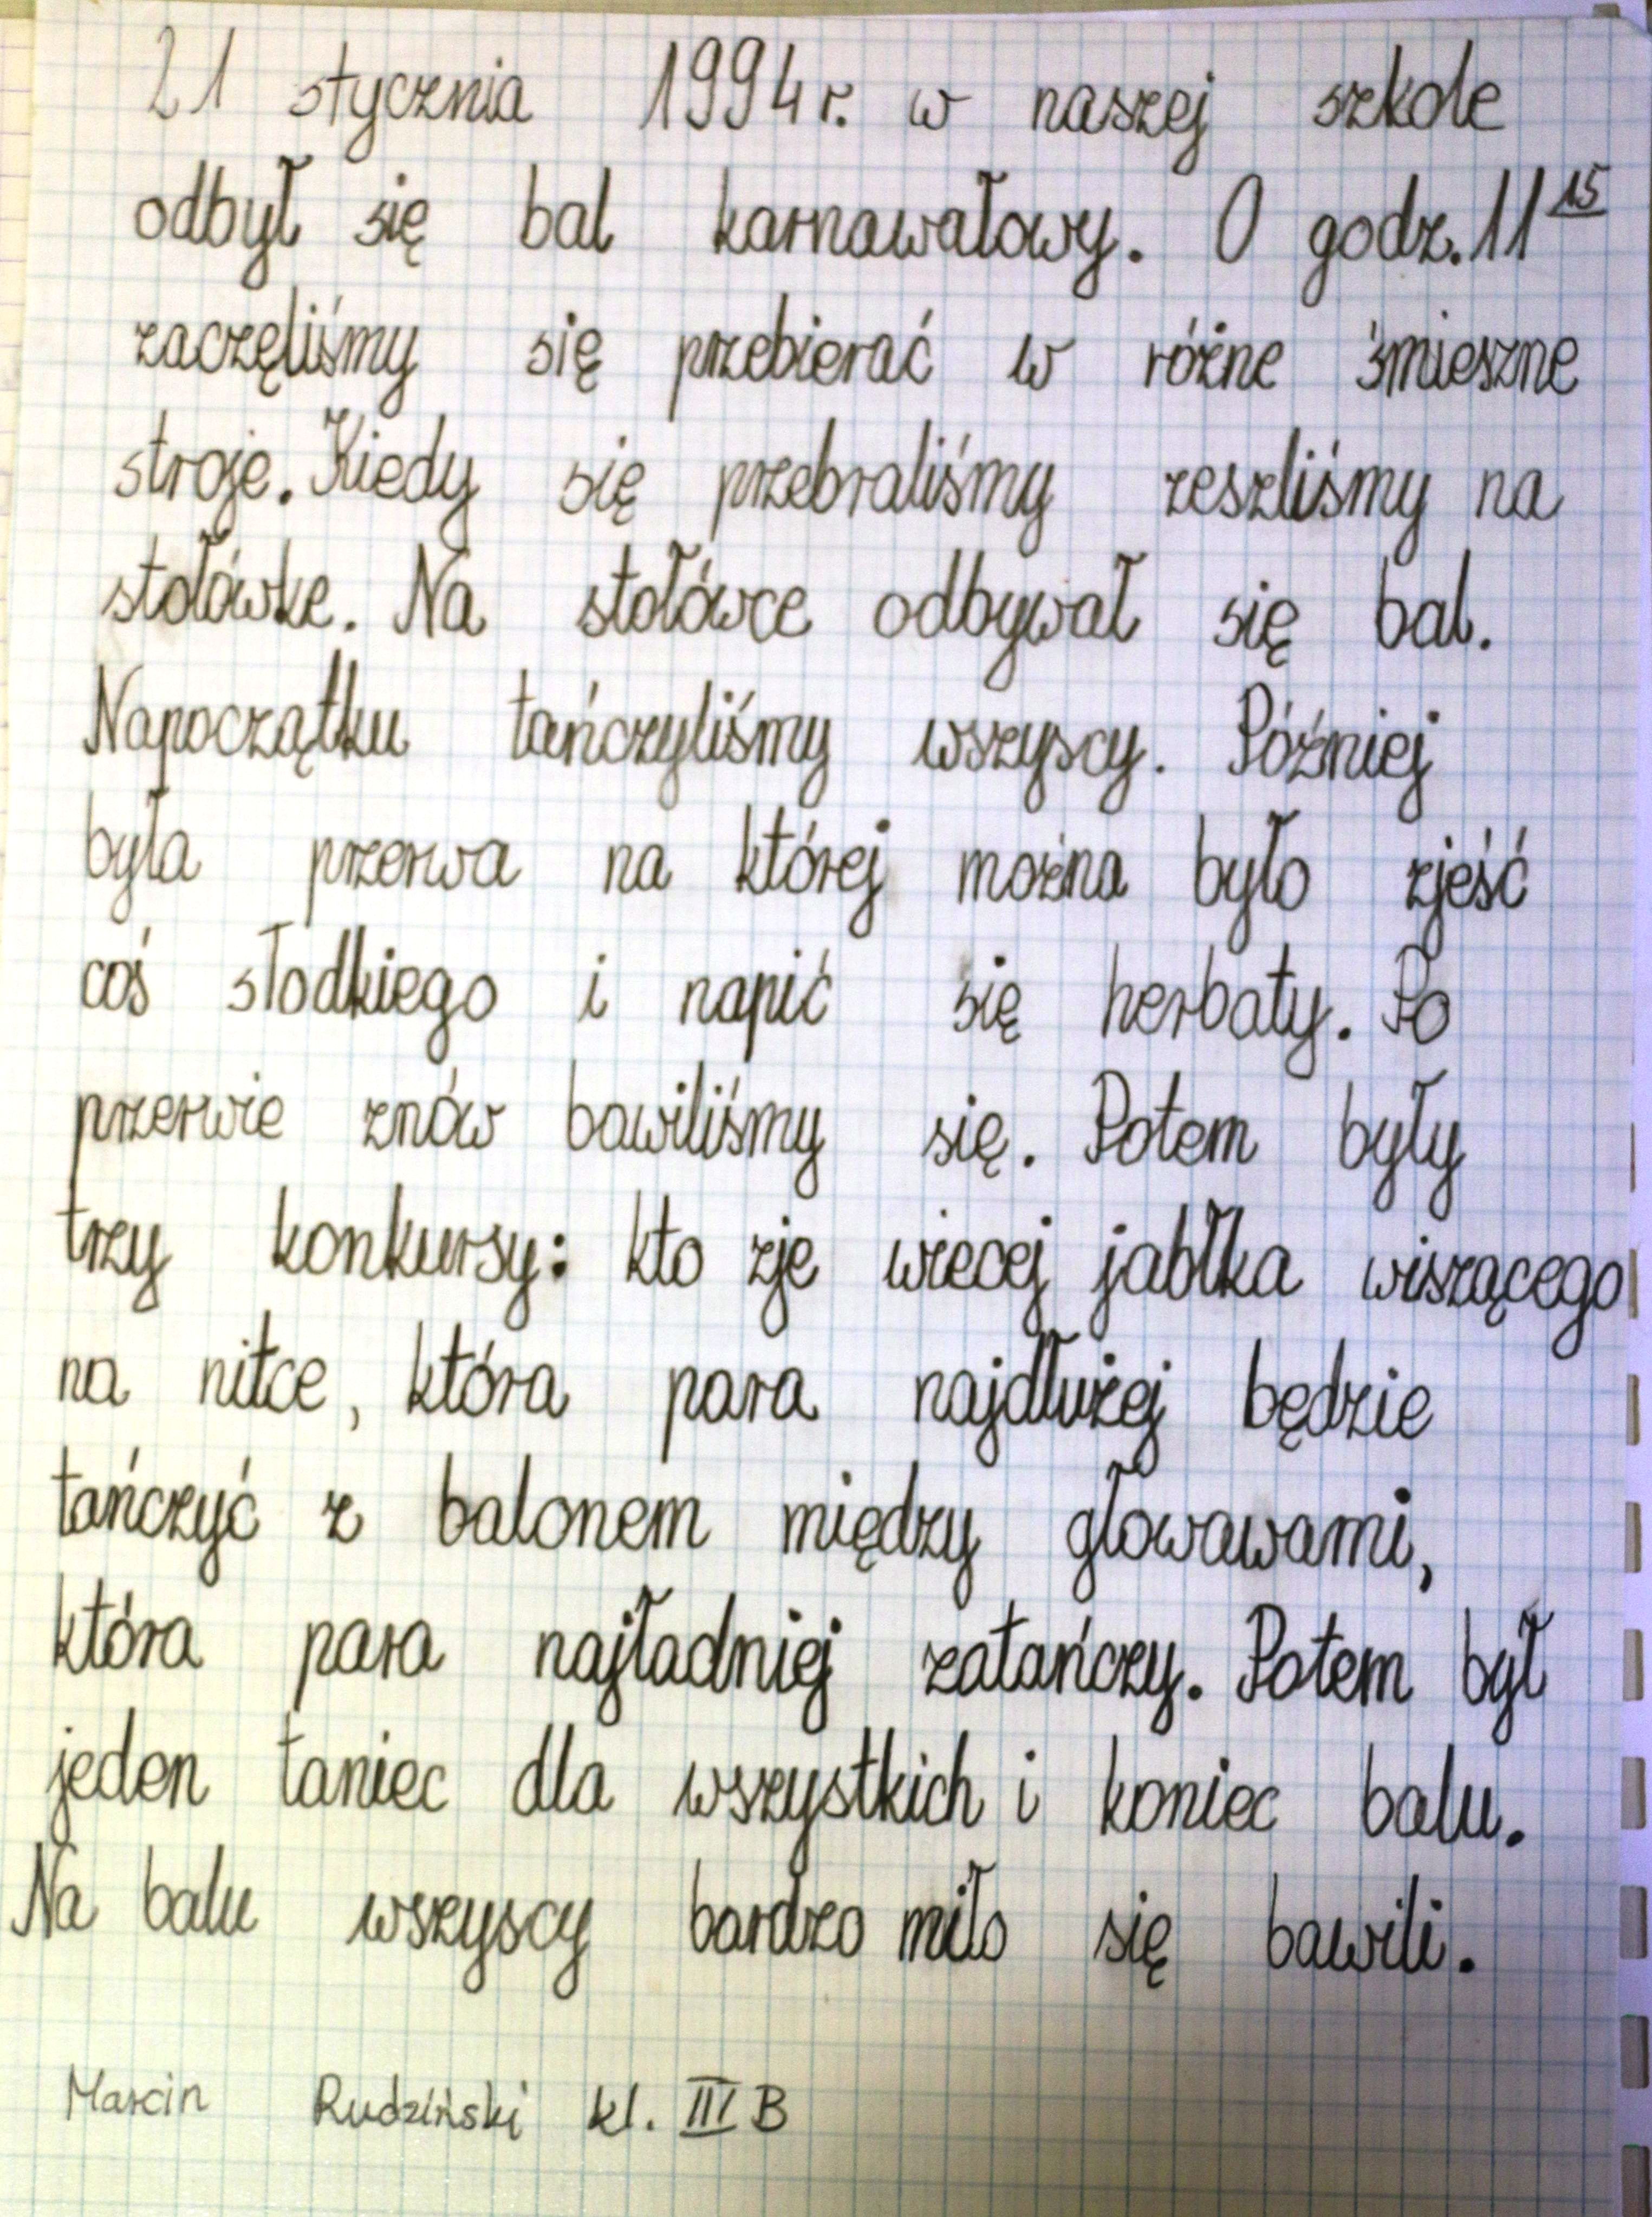 21 stycznia 1994 r. w naszej szkole
odbył się bal karnawałowy. O godz. 11 15
zaczęliśmy się przebierać w różne śmieszne
stroje. Kiedy się przebraliśmy zeszliśmy na
stołówke. Na stołówce odbywał się bal.
Napoczątku tańczyliśmy wszyscy. Później
była przerwa na której można było zjeść
coś słodkiego i napić się herbaty. Po
przerwie znów bawiliśmy się. Potem były
trzy konkursy: kto zje wiecej jabłka wiszącego
na nitce, która para najdłużej będzie
tańczyć z balonem między głowawami,
która para najładniej zatańczy. Potem był
jeden taniec dla wszystkich i koniec balu.
Na balu wszyscy bardzo miło się bawili.
Marcin Rudziński kl. III B